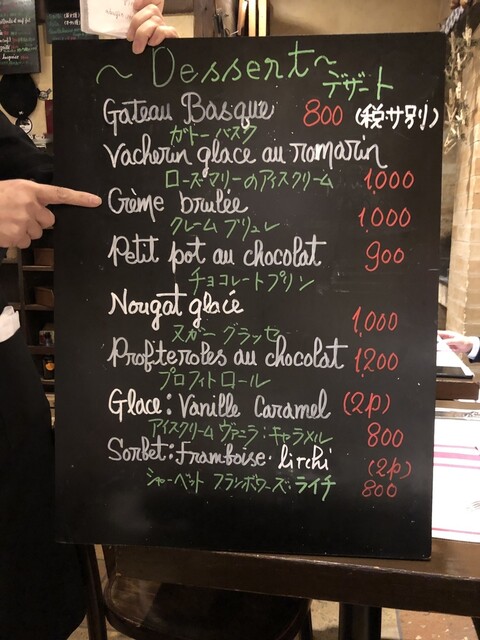 ~ Dessert ~
デザート
Gateau Basque 800 (税サ別)
ガトーバスク
Vacherin glace au romarin
ローズマリーのアイスクリーム 1,000
Crème brulée
クレームブリュレ 1,000
Petit pot au chocolat 900
チョコレートプリン
Nougat glacé
ヌガーグラッセ 1,000
Profiteroles au chocolat 1,200
プロフィトロール
Glace: Vanille Caramel (2p)
アイスクリーム ヴァニラ・キャラメル 800
Sorbet: Framboise・Lirchi (2p)
シャーベット フランボワーズ・ライチ 800